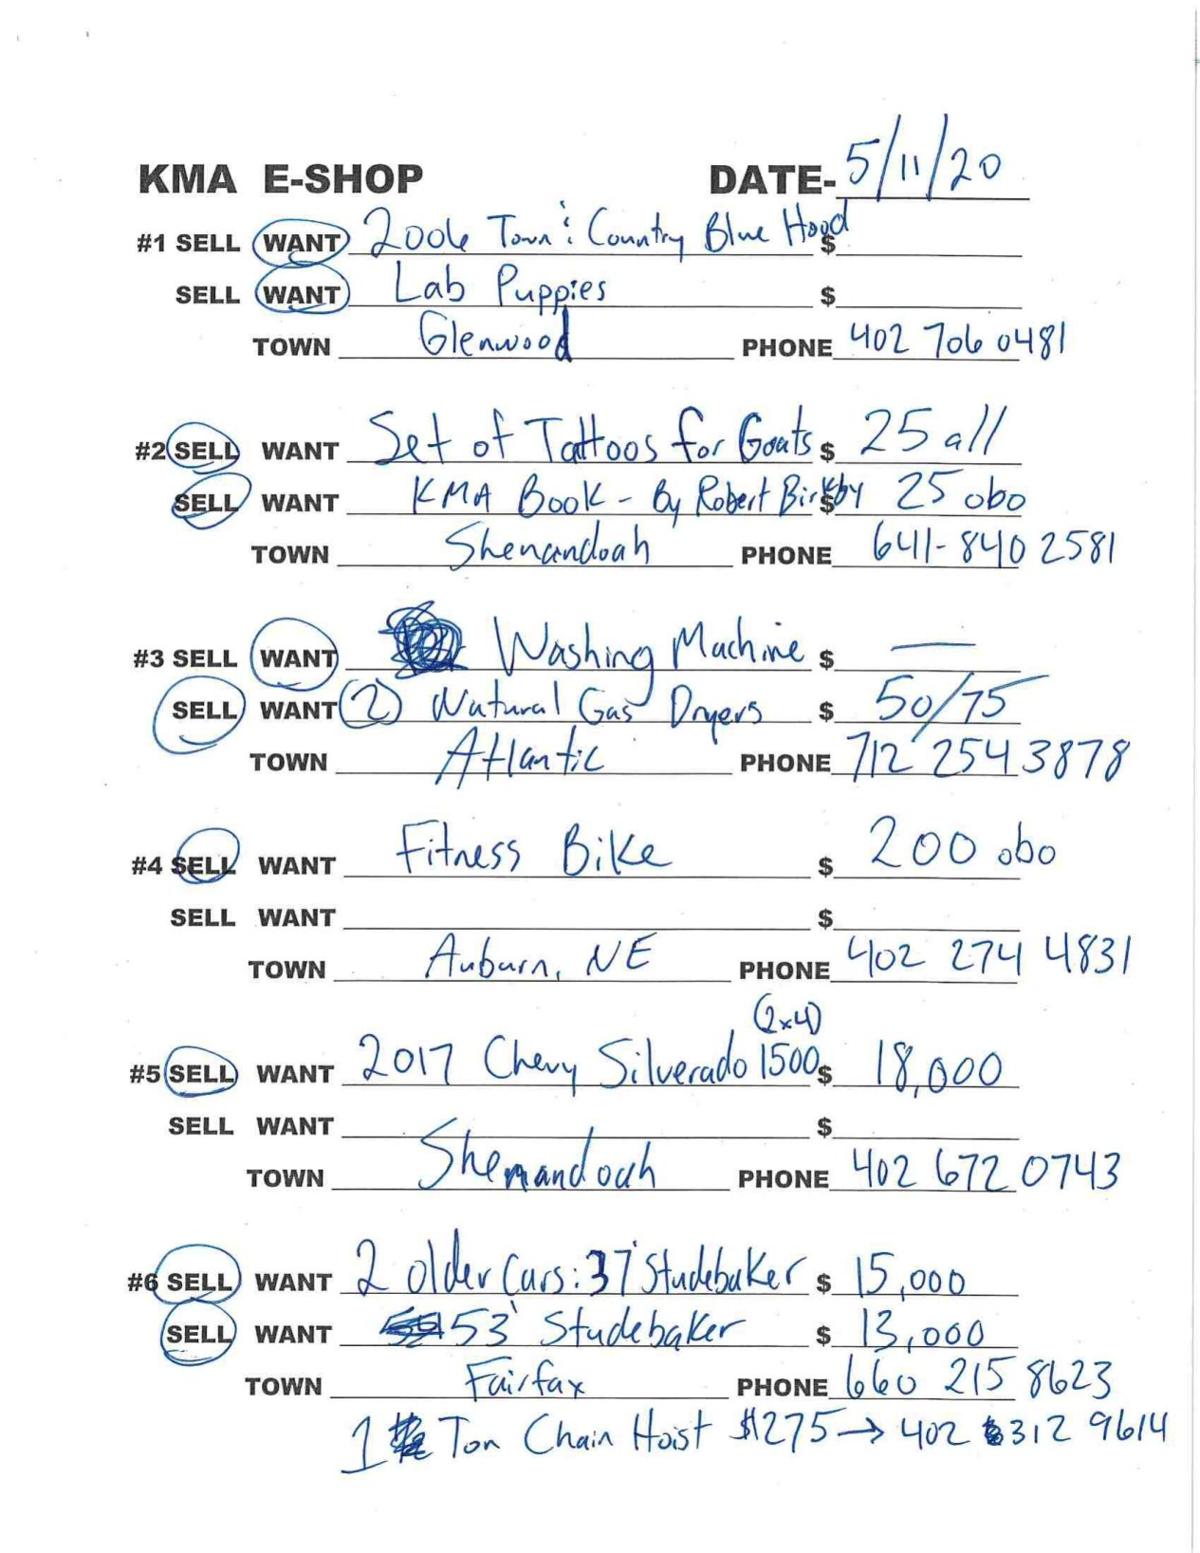 KMA E-SHOP DATE- 5/11/20
#1 SELL WANT 2006 Town & Country Blue Hood $
SELL WANT Lab Puppies $
TOWN Glenwood PHONE 402 706 0481
#2 SELL WANT Set of Tattoos for Goats $ 25 all
SELL WANT KMA Book - By Robert Birkby $ 25 obo
TOWN Shenandoah PHONE 641-840 2581
#3 SELL WANT Washing Machine $ —
SELL WANT (2) Natural Gas Dryers $ 50/75
TOWN Atlantic PHONE 712 254 3878
#4 SELL WANT Fitness Bike $ 200 obo
SELL WANT $
TOWN Auburn, NE PHONE 402 274 4831
(2x4)
#5 SELL WANT 2017 Chevy Silverado 1500 $ 18,000
SELL WANT $
TOWN Shenandoah PHONE 402 672 0743
#6 SELL WANT 2 older Cars: 37' Studebaker $ 15,000
SELL WANT 53' Studebaker $ 13,000
TOWN Fairfax PHONE 660 215 8623
1 Ton Chain Hoist $275 → 402 312 9614